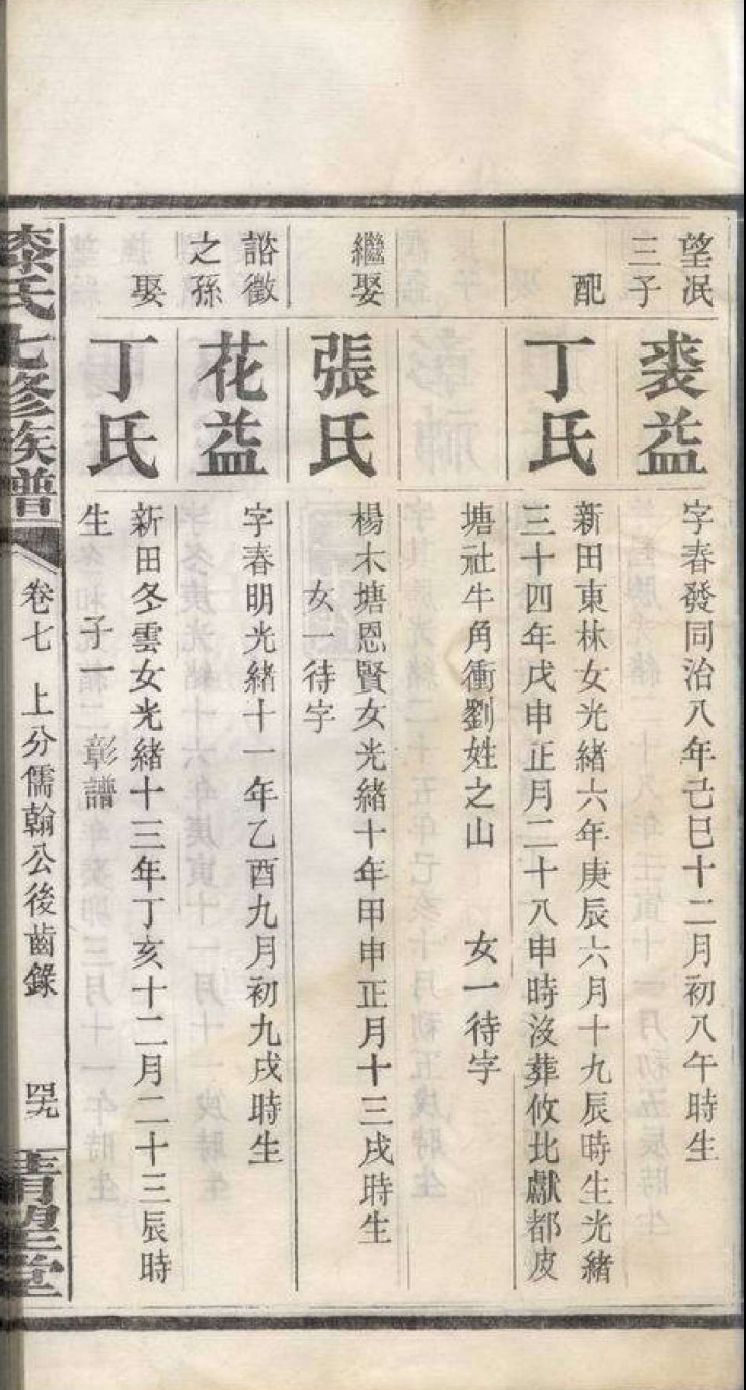 望泯
三子
裘益
字春發同治八年己巳十二月初八午時生
配
丁氏
新田東林女光緒六年庚辰六月十九辰時生光緒
三十四年戊申正月二十八申時沒葬攸北獻都皮
塘社牛角衝劉姓之山 女一待字
繼娶
張氏
楊木塘恩賢女光緒十年甲申正月十三戌時生
女一待字
諮徵
之孫
花益
字春明光緒十一年乙酉九月初九戌時生
娶
丁氏
新田冬雲女光緒十三年丁亥十二月二十三辰時
生 子一 彰譜
氏七修族譜
卷七 上分儒翰公後齒錄
四九
青望堂